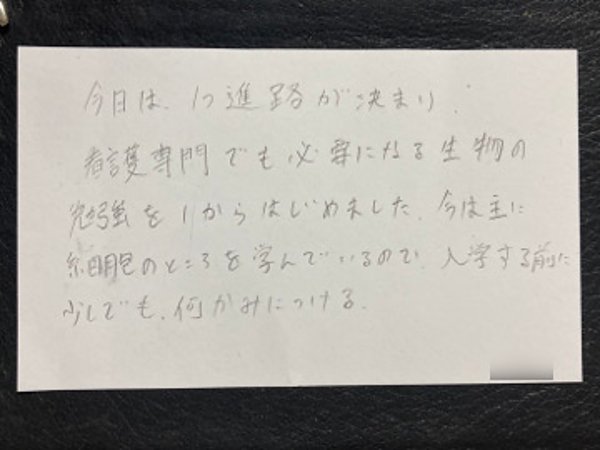 今日は、1つ進路が決まり、
看護専門でも必要になる生物の
勉強を1からはじめました。今は主に
細胞のところを学んでいるので、入学する前に
少しでも、何かみにつける。